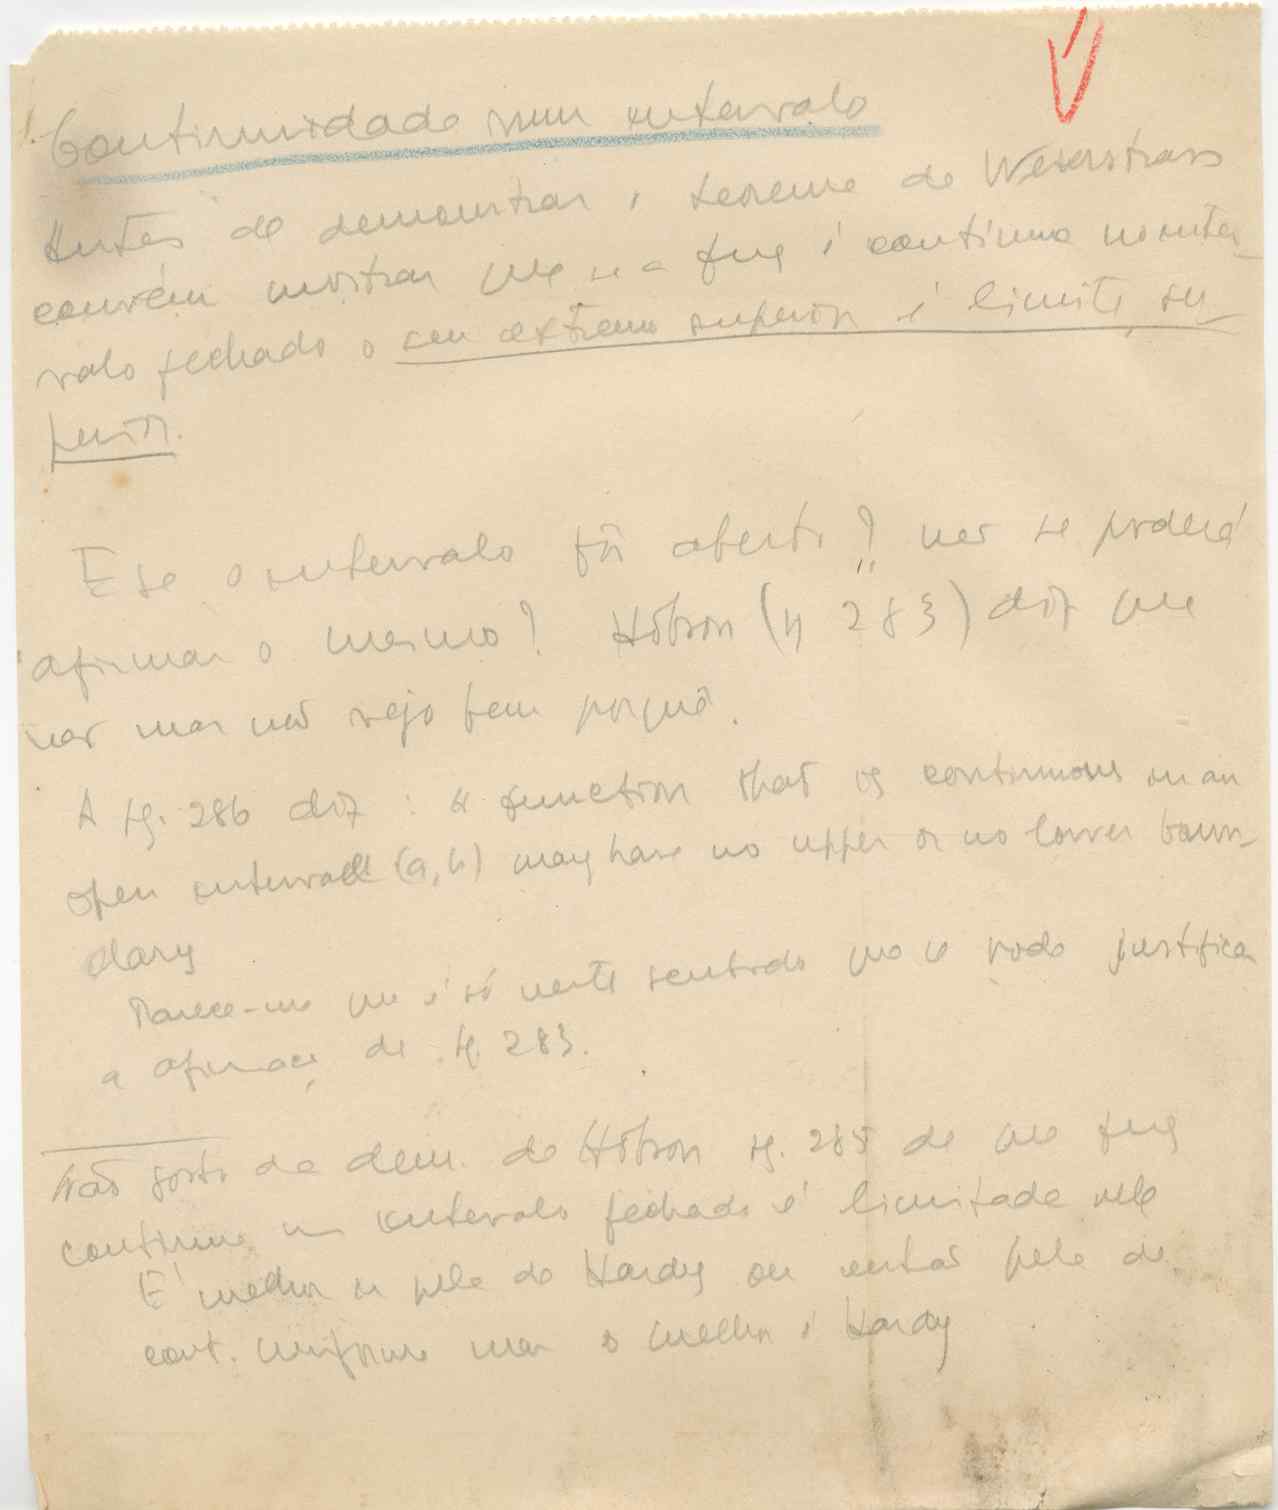 Continuidade num intervalo
Antes de demonstrar o teorema de Weierstrass
convém mostrar que se a funç é continua no inter-
valo fechado o seu extremo superior é limite su-
perior.
E se o intervalo fôr aberto? não se poderá
afirmar o mesmo? Hobson (pg 283) diz que
não mas não vejo bem porquê.
A pg. 286 diz: A function that is continuous in an
open interval (a, b) may have no upper or no lower boun-
dary
Parece-me que é só neste sentido que se pode justificar
a afirmaç de pg. 283.
Não gosto da dem. do Hobson pg. 285 de que funç
continua num intervalo fechado é limitada nele
É melhor ir pela do Hardy ou então pela da
cont. uniforme mas o melhor é Hardy